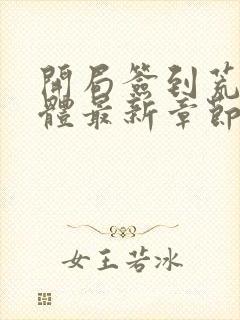 開局簽到荒
體最新章節
女王若冰